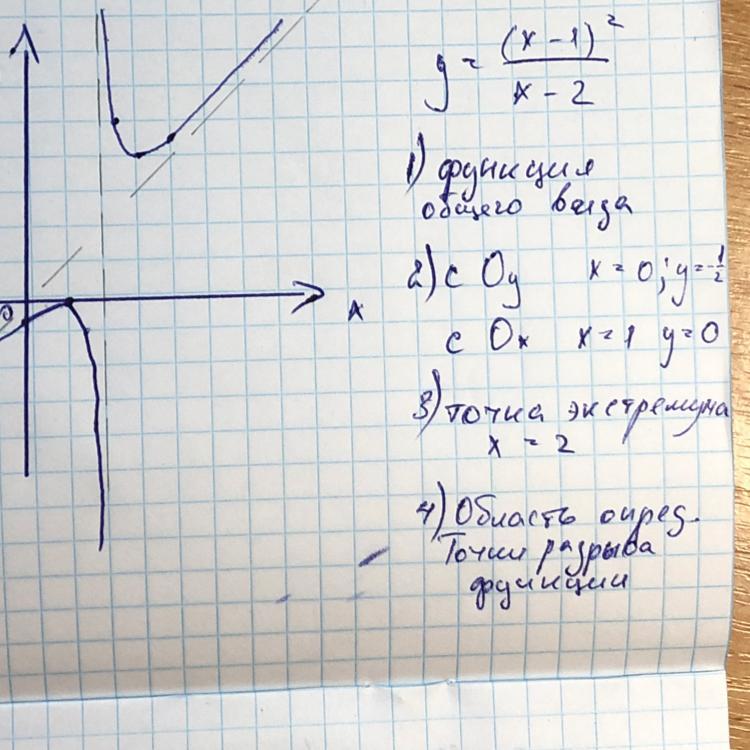 y = (x - 1)² / x - 2
1) функция
общего вида
2) с Oy x = 0; y = -1/2
с Ox x = 1 y = 0
3) точка экстремума
x = 2
4) Область опред.
Точки разрыва
функции
0
x